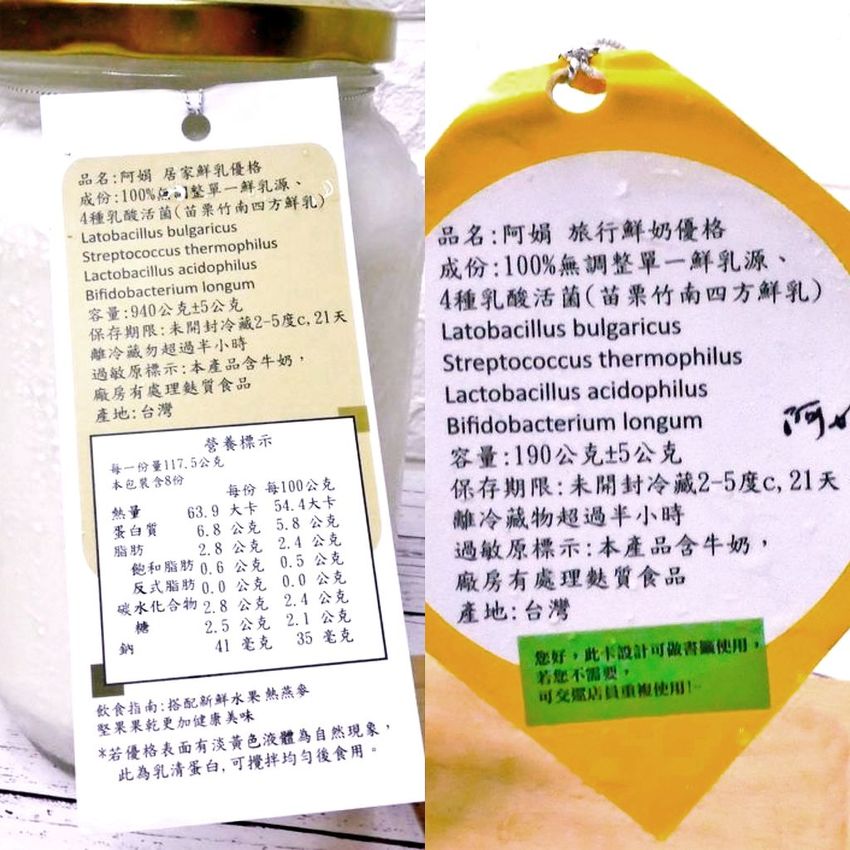 品名:阿娟 居家鮮乳優格
成份:100%無調整單一鮮乳源、
4種乳酸活菌(苗栗竹南四方鮮乳)
Latobacillus bulgaricus
Streptococcus thermophilus
Lactobacillus acidophilus
Bifidobacterium longum
容量:940公克±5公克
保存期限:未開封冷藏2-5度c,21天
離冷藏勿超過半小時
過敏原標示:本產品含牛奶，
廠房有處理麩質食品
產地:台灣
營養標示
每一份量117.5公克
本包裝含8份
每份 每100公克
熱量 63.9 大卡 54.4大卡
蛋白質 6.8 公克 5.8 公克
脂肪 2.8 公克 2.4 公克
飽和脂肪 0.6 公克 0.5 公克
反式脂肪 0.0 公克 0.0 公克
碳水化合物 2.8 公克 2.4 公克
糖 2.5 公克 2.1 公克
鈉 41 毫克 35 毫克
飲食指南:搭配新鮮水果熱燕麥
堅果果乾更加健康美味
*若優格表面有淡黃色液體為自然現象，
此為乳清蛋白,可攪拌均勻後食用。
品名:阿娟 旅行鮮奶優格
成份:100%無調整單一鮮乳源、
4種乳酸活菌(苗栗竹南四方鮮乳)
Latobacillus bulgaricus
Streptococcus thermophilus
Lactobacillus acidophilus
Bifidobacterium longum
阿
容量:190公克±5公克
保存期限:未開封冷藏2-5度c,21天
離冷藏物超過半小時
過敏原標示:本產品含牛奶，
廠房有處理麩質食品
產地:台灣
您好，此卡設計可做書籤使用，
若您不需要，
可交還店員重複使用!